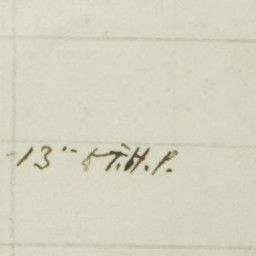 -13" & T.H.P.